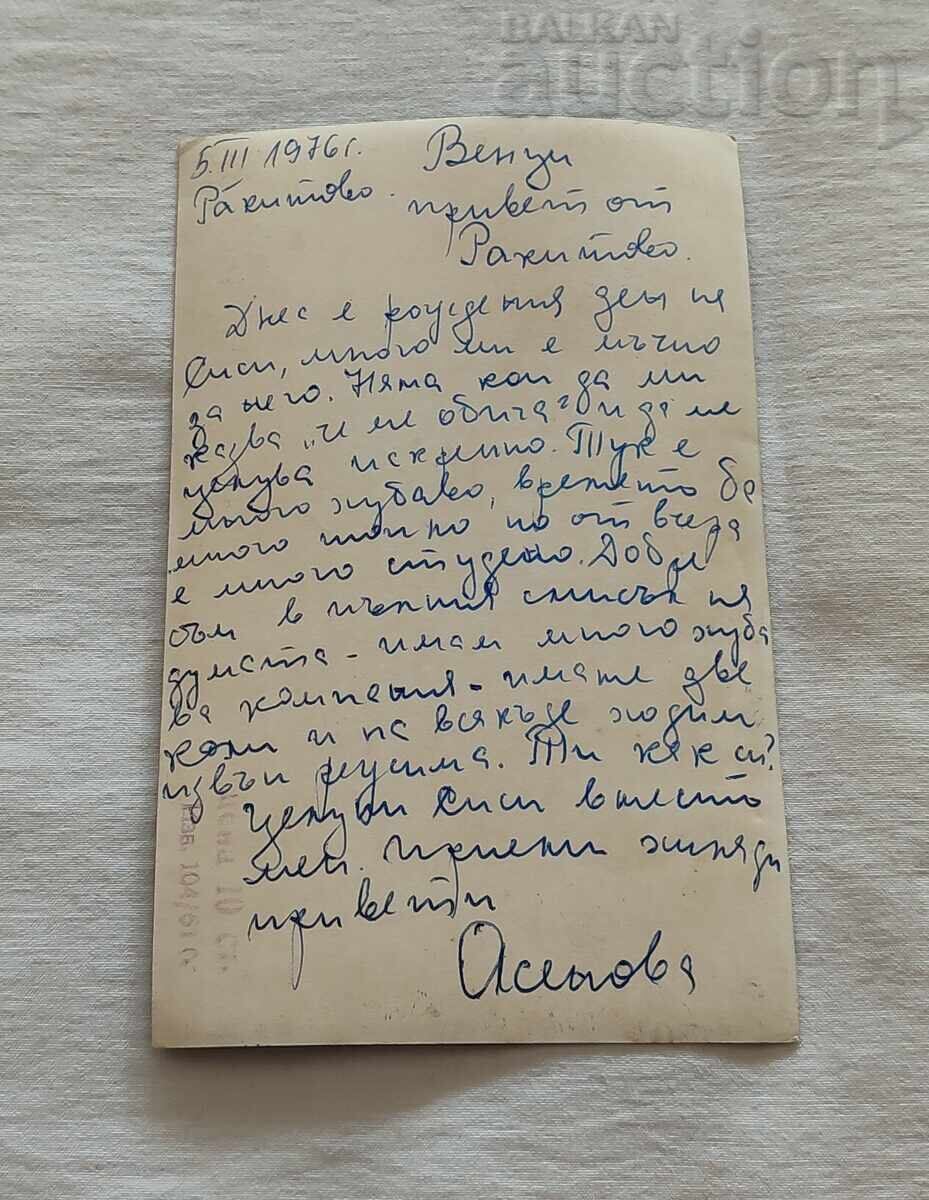 BALKAN
auction
5.III.1976 г.
Ракитово.
Венци
привет от
Ракитово.
Днес е рождения ден на
Сиси, много ми е мъчно
за него. Няма кой да ми
казва „И ме обича" и да ме
целува искрено. Тук е
много хубаво, времето бе
много топло, но от вчера
е много студено. Добре
съм в пълния смисъл на
думата - имам много хуба
ва компания - имаме две
коли и на всякъде ходим
извън режима. Ти как си?
Целуни Сиси вместо
мен. Приеми хиляди
привети
Асенова
цена 10 ст.
Изв. 104/61 г.